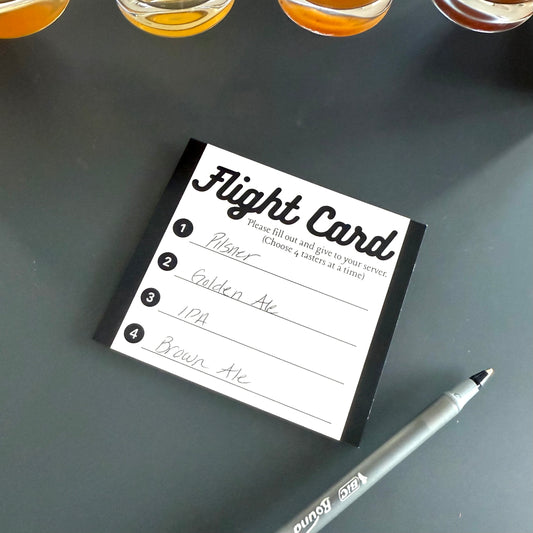 Flight Card
Please fill out and give to your server.
(Choose 4 tasters at a time)
1 Pilsner
2 Golden Ale
3 IPA
4 Brown Ale
BIC
Round